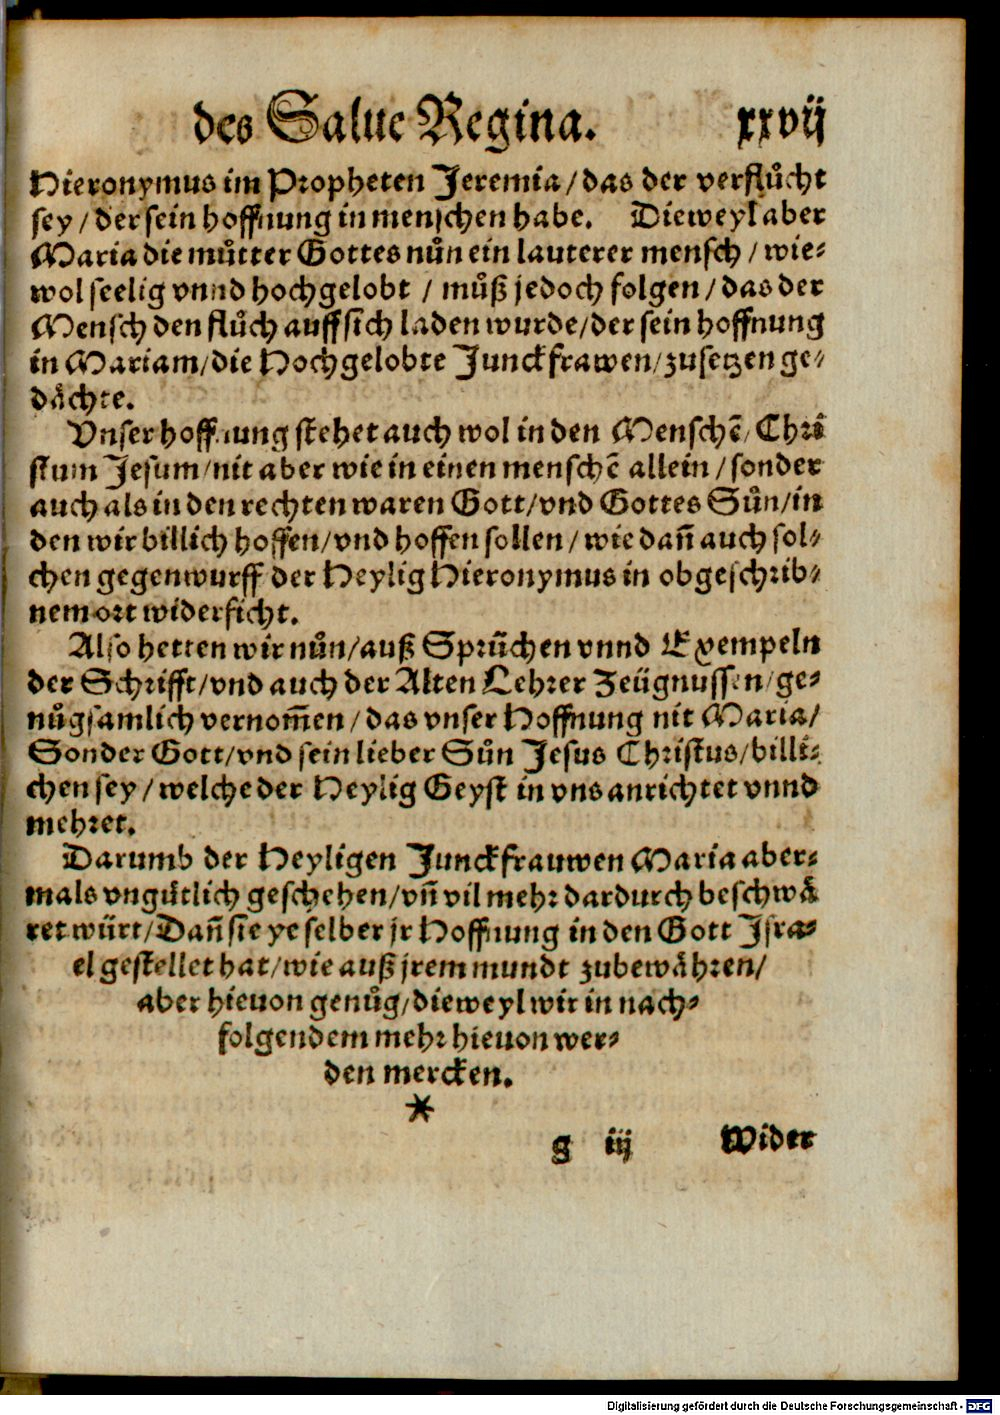 des Salue Regina. xxvij
Hieronymus im Propheten Jeremia/das der verflůcht
sey/der sein hoffnung in menschen habe. Dieweyl aber
Maria die můtter Gottes nůn ein lauterer mensch/wie-
wol seelig vnnd hochgelobt/můß jedoch folgen/das der
Mensch den flůch auff sich laden wurde/der sein hoffnung
in Mariam/die Hochgelobte Junckfrawen/zusetzen ge-
dåchte.
Vnser hoffnung stehet auch wol in den Menschẽ/Chri
stum Jesum/nit aber wie in einen menschẽ allein/sonder
auch als in den rechten waren Gott/vnd Gottes Sůn/in
den wir billich hoffen/vnd hoffen sollen/wie dañ auch sol-
chen gegenwurff der Heylig Hieronymus in obgeschrib-
nem ort widersicht.
Also hetten wir nůn/auß Sprüchen vnnd Exempeln
der Schrifft/vnd auch der Alten Lehrer Zeügnussen/ge-
nůgsamlich vernom̃en/das vnser Hoffnung nit Maria/
Sonder Gott/vnd sein lieber Sůn Jesus Christus/billi-
chen sey/welche der Heylig Geyst in vns anrichtet vnnd
mehret.
Darumb der Heyligen Junckfrauwen Maria aber-
mals vngütlich geschehen/vñ vil mehr dardurch beschwå
ret würt/Dañ sie ye selber jr Hoffnung in den Gott Jsra-
el gestellet hat/wie auß jrem mundt zubewåhren/
aber hieuon genůg/dieweyl wir in nach-
folgendem mehr hieuon wer-
den mercken.
*
g iij Wider
Digitalisierung gefördert durch die Deutsche Forschungsgemeinschaft - DFG